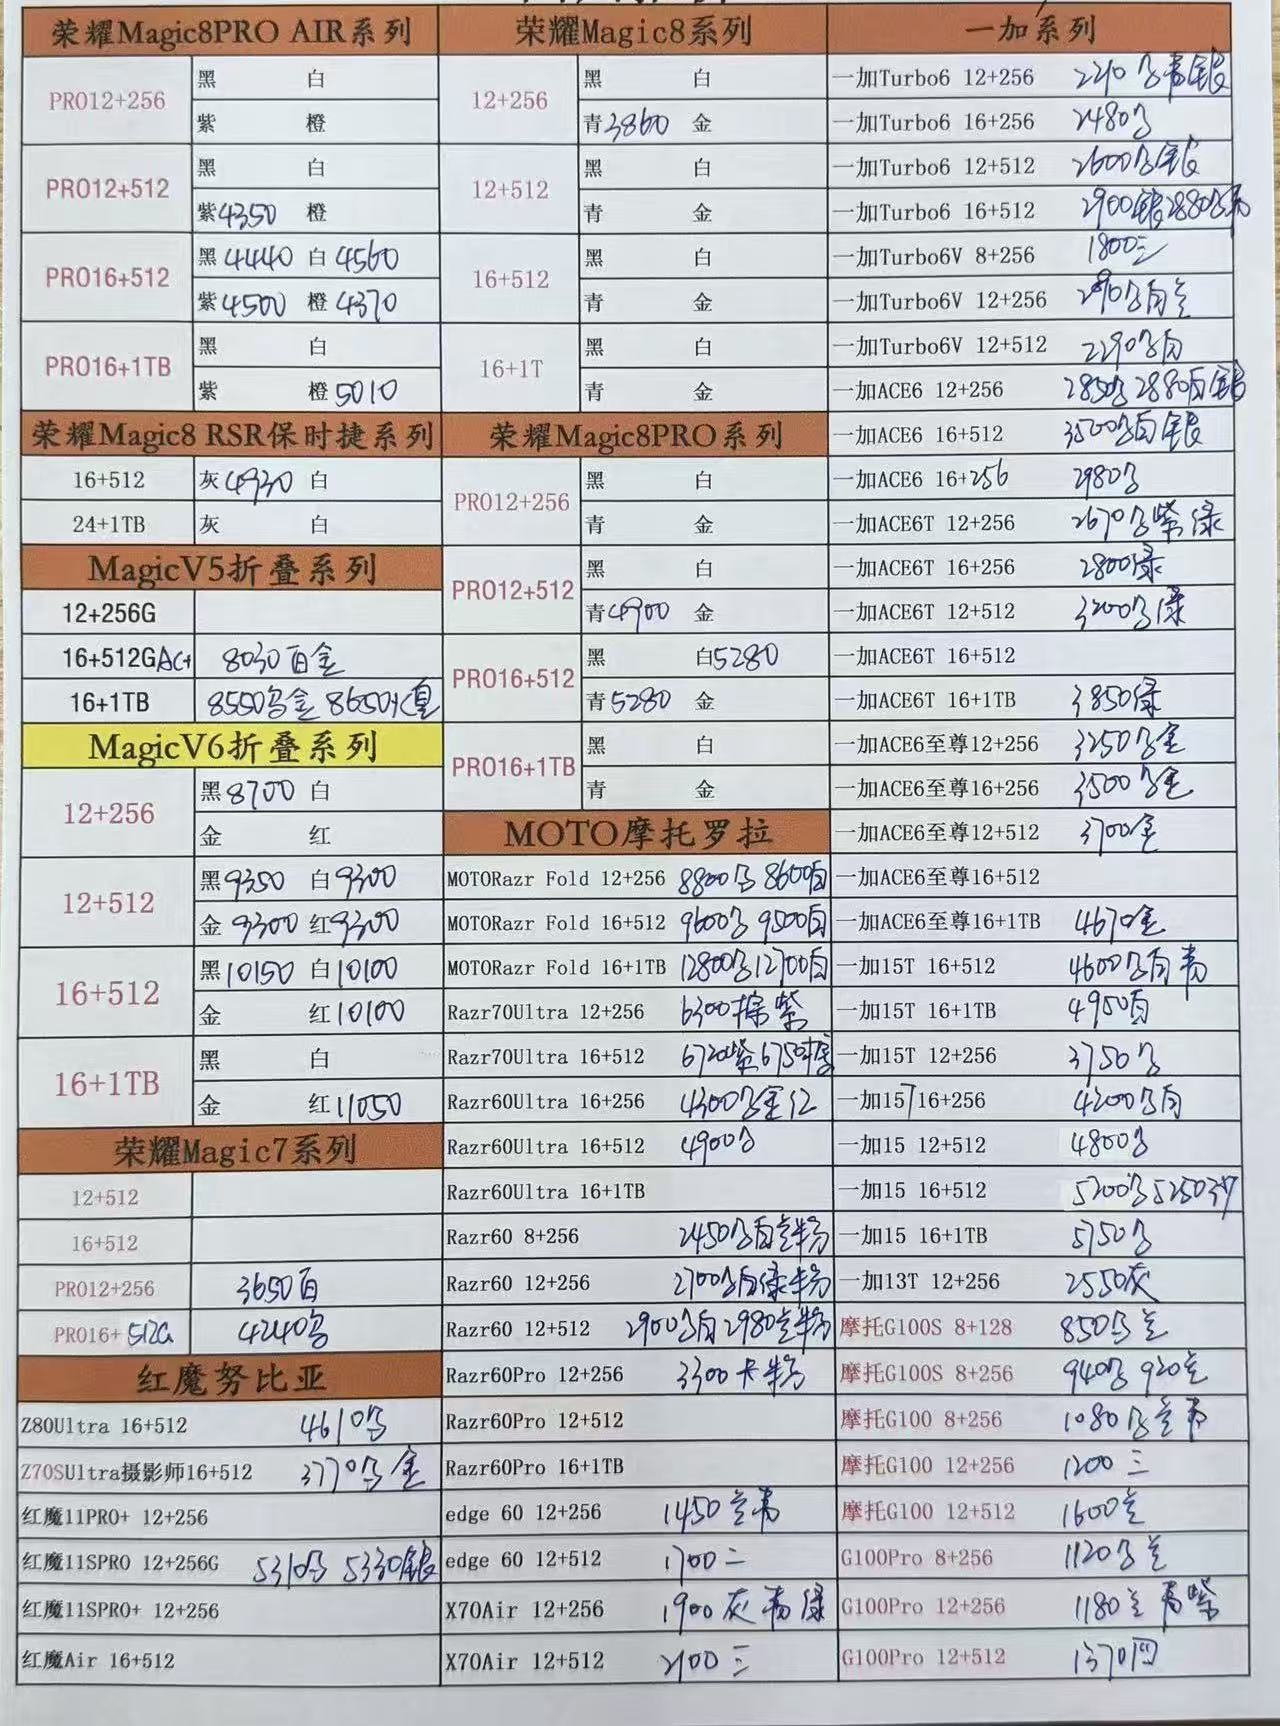 荣耀Magic8PRO AIR系列
PRO12+256 黑 白
紫 橙
PRO12+512 黑 白
紫4350 橙
PRO16+512 黑4440 白4560
紫4500 橙4370
PRO16+1TB 黑 白
紫 橙5010
荣耀Magic8 RSR保时捷系列
16+512 灰4930 白
24+1TB 灰 白
MagicV5折叠系列
12+256G
16+512GAC+ 8030百金
16+1TB 8550乌金 8650
MagicV6折叠系列
12+256 黑8700 白
金 红
12+512 黑9350 白9300
金9300 红9300
16+512 黑10150 白10100
金 红10100
16+1TB 黑 白
金 红11050
荣耀Magic7系列
12+512
16+512
PRO12+256 3650百
PRO16+512G 4240
红魔努比亚
Z80Ultra 16+512 4610
Z70SUltra摄影师16+512 3770 金
红魔11PRO+ 12+256
红魔11SPRO 12+256G 5310 5330银
红魔11SPRO+ 12+256
红魔Air 16+512
荣耀Magic8系列
12+256 黑 白
青3860 金
12+512 黑 白
青 金
16+512 黑 白
青 金
16+1T 黑 白
青 金
荣耀Magic8PRO系列
PRO12+256 黑 白
青 金
PRO12+512 黑 白
青4900 金
PRO16+512 黑 白5280
青5280 金
PRO16+1TB 黑 白
青 金
MOTO摩托罗拉
MOTORazr Fold 12+256 8800 8600白
MOTORazr Fold 16+512 9600 9500白
MOTORazr Fold 16+1TB 12800 12700白
Razr70Ultra 12+256 6300棕紫
Razr70Ultra 16+512 6720紫6750棕
Razr60Ultra 16+256 4300 金红
Razr60Ultra 16+512 4900
Razr60Ultra 16+1TB
Razr60 8+256 2450 白兰粉
Razr60 12+256 2700 白绿粉
Razr60 12+512 2900 白2980兰粉
Razr60Pro 12+256 3300卡粉
Razr60Pro 12+512
Razr60Pro 16+1TB
edge 60 12+256 1450兰青
edge 60 12+512 1700二
X70Air 12+256 1900灰青绿
X70Air 12+512 2100三
一加系列
一加Turbo6 12+256 青银
一加Turbo6 16+256 2480
一加Turbo6 12+512 2600 银
一加Turbo6 16+512 2900银2880 青
一加Turbo6V 8+256 1800三
一加Turbo6V 12+256 白兰
一加Turbo6V 12+512 2290 白
一加ACE6 12+256 2850 2880白银
一加ACE6 16+512 3500 白银
一加ACE6 16+256 2980
一加ACE6T 12+256 2670 紫绿
一加ACE6T 16+256 2800绿
一加ACE6T 12+512 3200 绿
一加ACE6T 16+512
一加ACE6T 16+1TB 3850绿
一加ACE6至尊12+256 3250 金
一加ACE6至尊16+256 3500 金
一加ACE6至尊12+512 3700金
一加ACE6至尊16+512
一加ACE6至尊16+1TB 4670金
一加15T 16+512 4600 白青
一加15T 16+1TB 4950白
一加15T 12+256 3750
一加15T 16+256 4200 白
一加15 12+512 4800
一加15 16+512 5200 5250沙
一加15 16+1TB 5750
一加13T 12+256 2550灰
摩托G100S 8+128 850 兰
摩托G100S 8+256 940 920兰
摩托G100 8+256 1080 兰青
摩托G100 12+256 1200三
摩托G100 12+512 1600兰
G100Pro 8+256 1120 兰
G100Pro 12+256 1180兰青紫
G100Pro 12+512 1370四